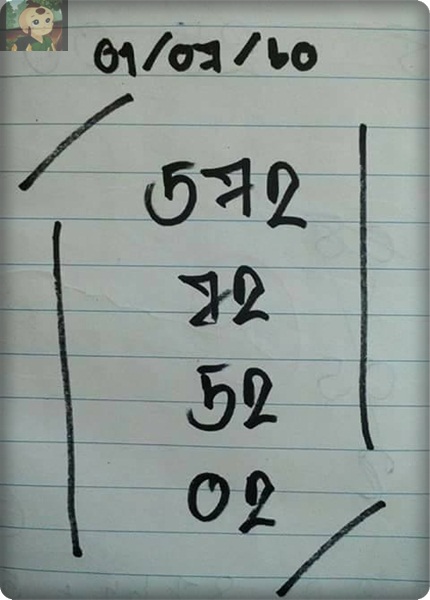 01/07/60
572
72
52
02